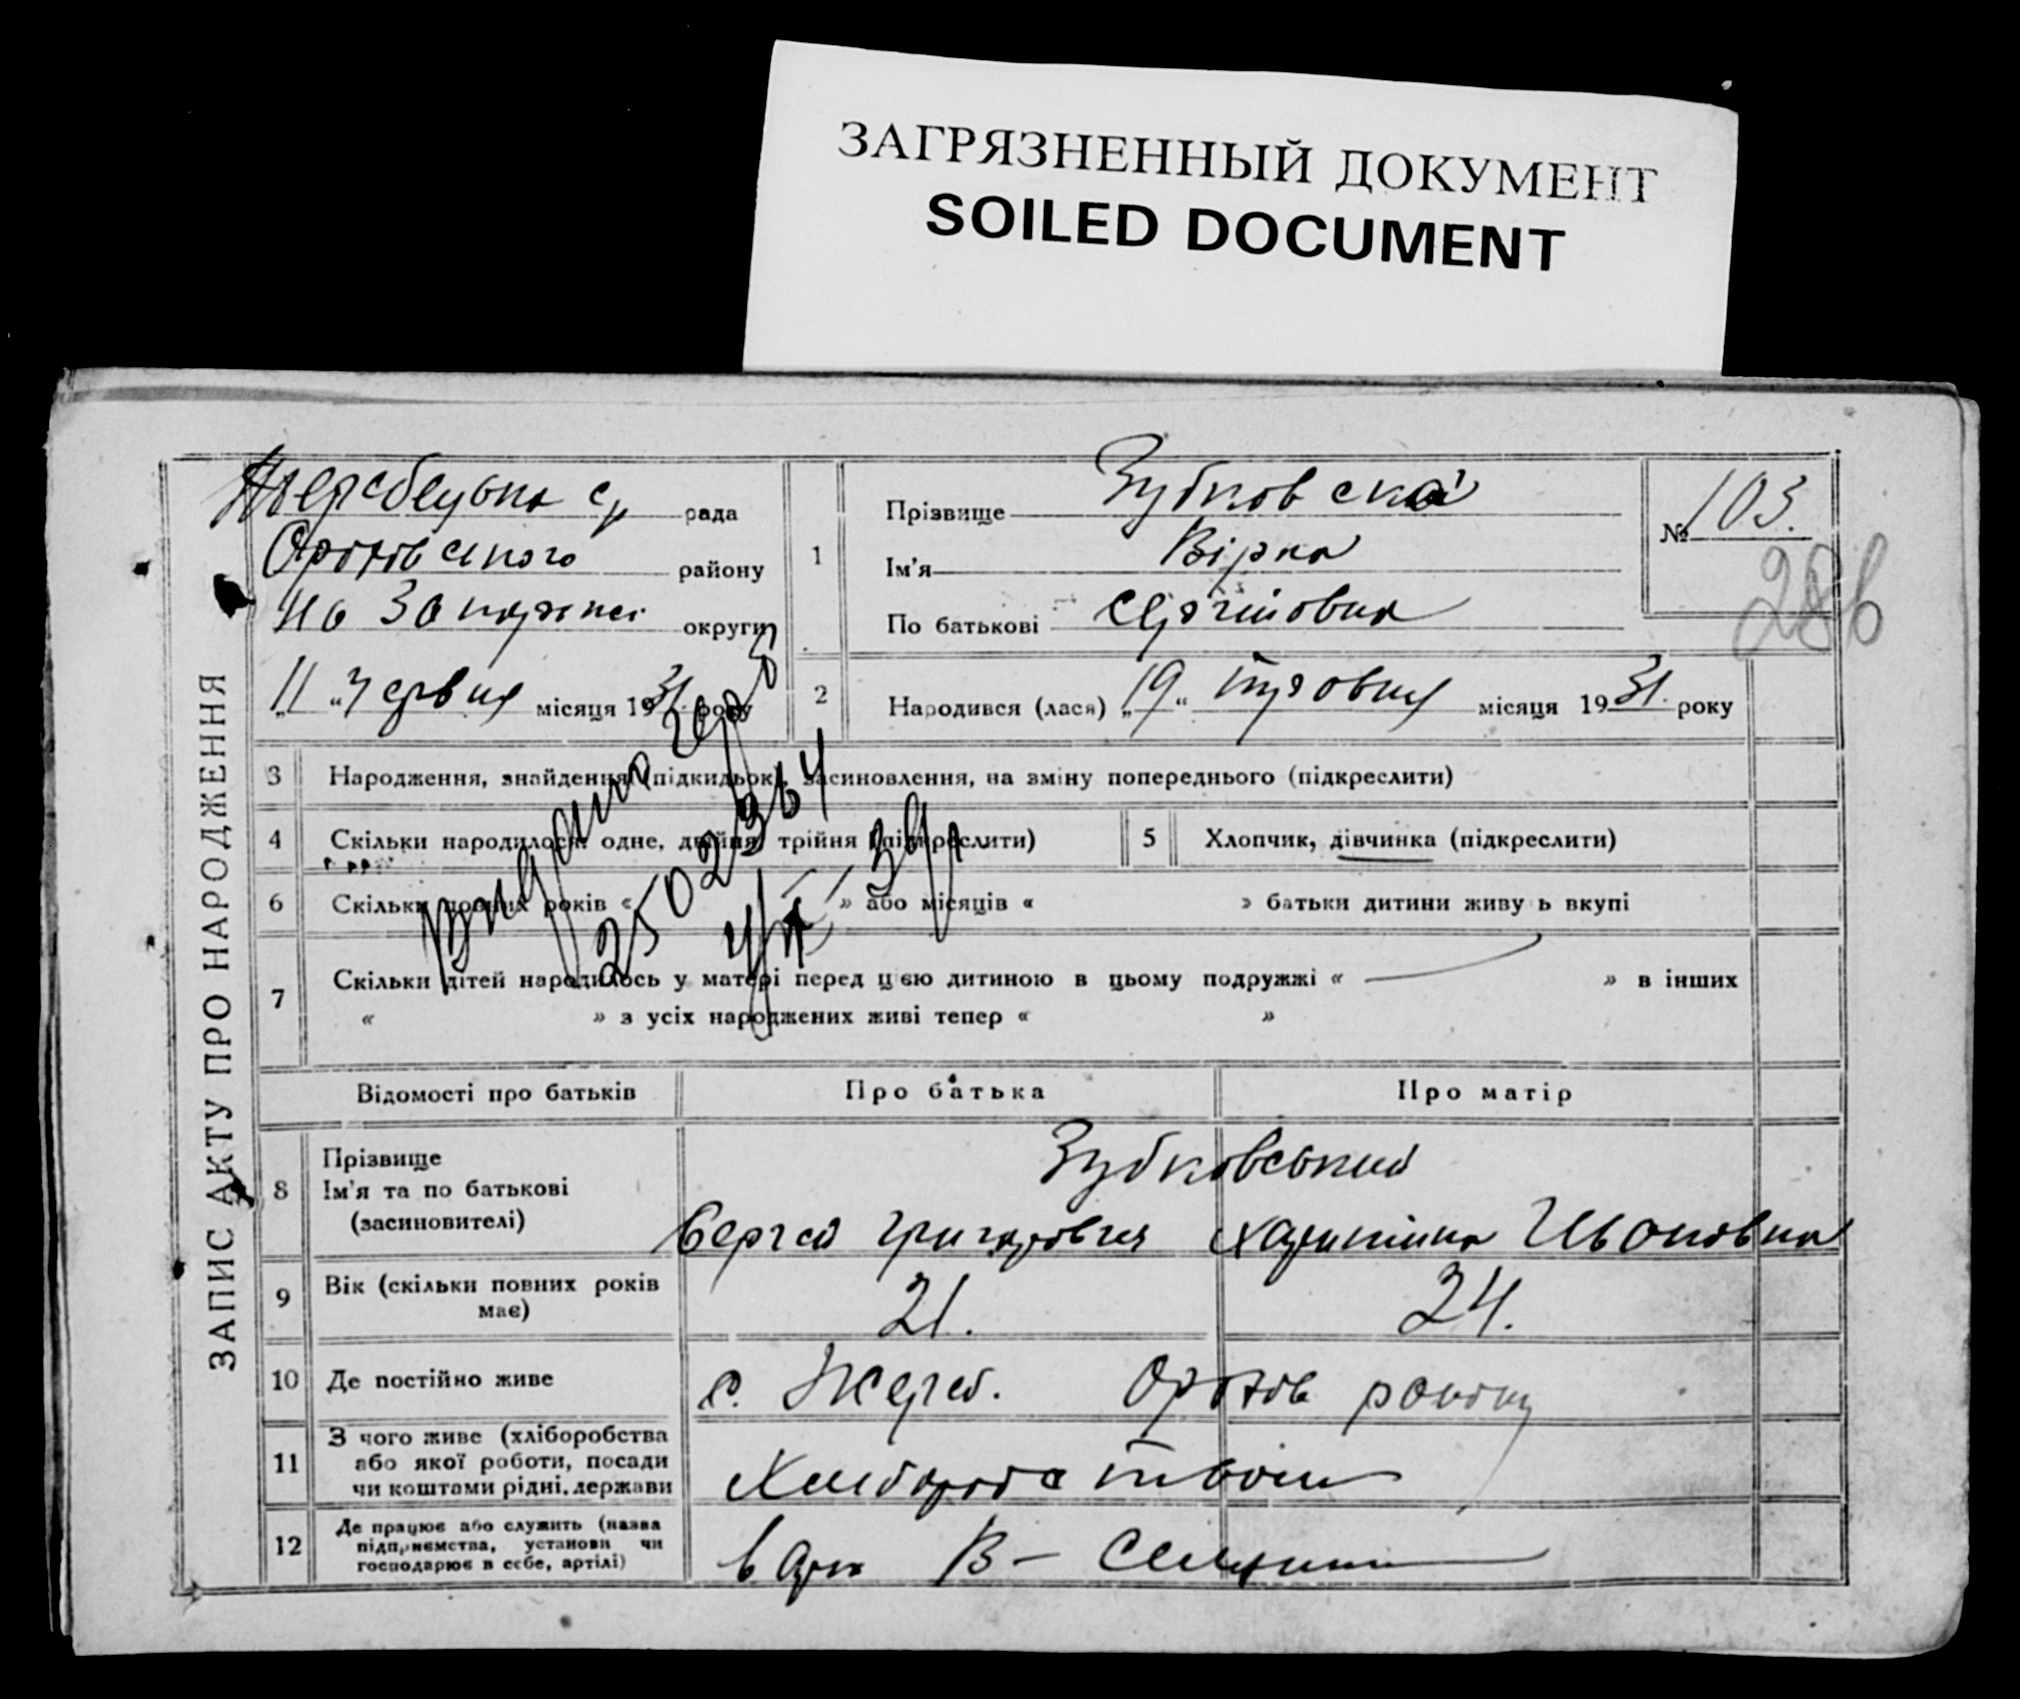 ЗАГРЯЗНЕННЫЙ ДОКУМЕНТ
SOILED DOCUMENT
ЗАПИС АКТУ ПРО НАРОДЖЕННЯ
Жеребецька рада
Оріхівського району
на Запоріжжі округи
„11“ червня місяця 1931 року
1
Прізвище Зубковська
Ім'я Вірка
По батькові Сергіївна
№ 103.
286
2 Народився (лася) „19“ травня місяця 1931. року
3 Народження, знайдення (підкидьок), засиновлення, на зміну попереднього (підкреслити)
4 Скільки народилося: одне, двійня, трійня (підкреслити)
5 Хлопчик, дівчинка (підкреслити)
6 Скільки повних років « » або місяців « » батьки дитини живу ь вкупі
7 Скільки дітей народилось у матері перед цією дитиною в цьому подружжі « — » в інших
« » з усіх народжених живі тепер « »
Видана
2502364
Відомості про батьків
Про батька
Про матір
8 Прізвище
Ім'я та по батькові
(засиновителі)
Зубковський
Сергей Григорович Харитина Ивановна
9 Вік (скільки повних років має)
21.
24.
10 Де постійно живе
с. Жереб. Оріхів району
11 З чого живе (хліборобства
або якої роботи, посади
чи коштами рідні, держави
Хліборобством
12 Де працює або служить (назва
підприємства, установи чи
господарює в себе, артілі)